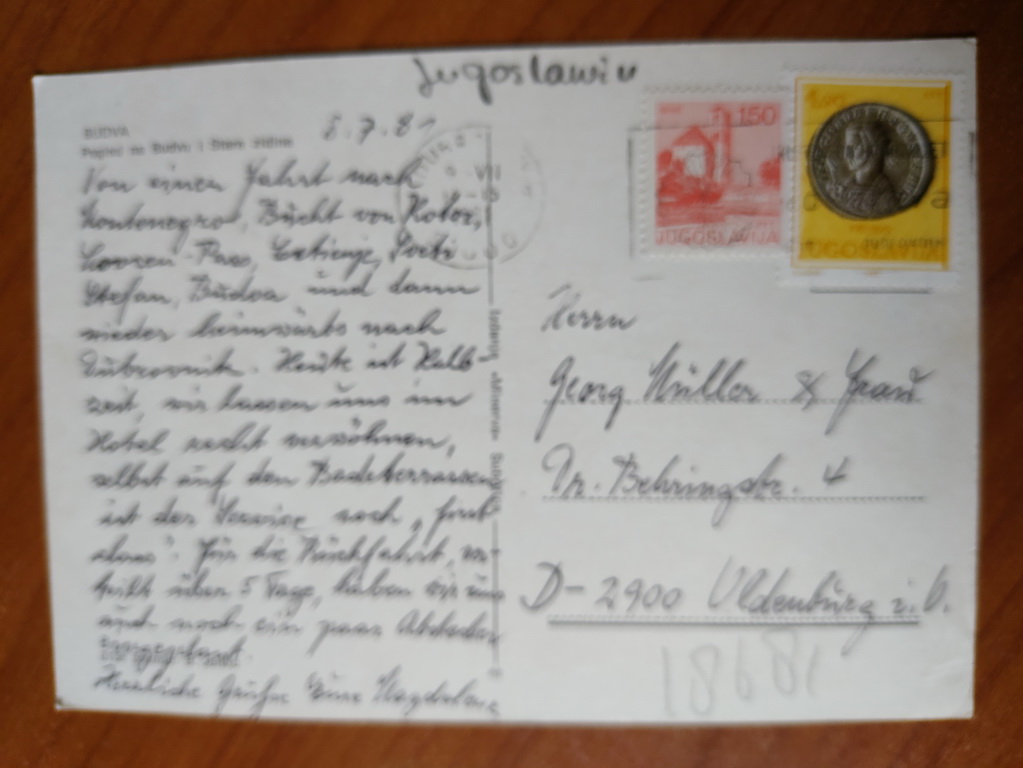 Jugoslawien
BUDVA
Pogled na Budvu i Stare zidine
5.7.81
Von einer Fahrt nach
Montenegro, Bucht von Kotor,
Lovcen-Pass, Cetinje, Sveti
Stefan, Budva und dann
wieder heimwärts nach
Dubrovnik. Heute ist Halb-
zeit, wir lassen uns im
Hotel recht verwöhnen,
selbst auf den Badeterrassen
ist der Service noch „first
class". Für die Rückfahrt, ver-
teilt über 5 Tage, haben wir uns
auch noch ein paar Abstecher
Herzliche Grüße Eure Magdalena
1.50
JUGOSLAVIJA
JUGOSLAVIJA
Herrn
Georg Müller & Frau
Dr. Behringstr. 4
D-2900 Oldenburg i. O.